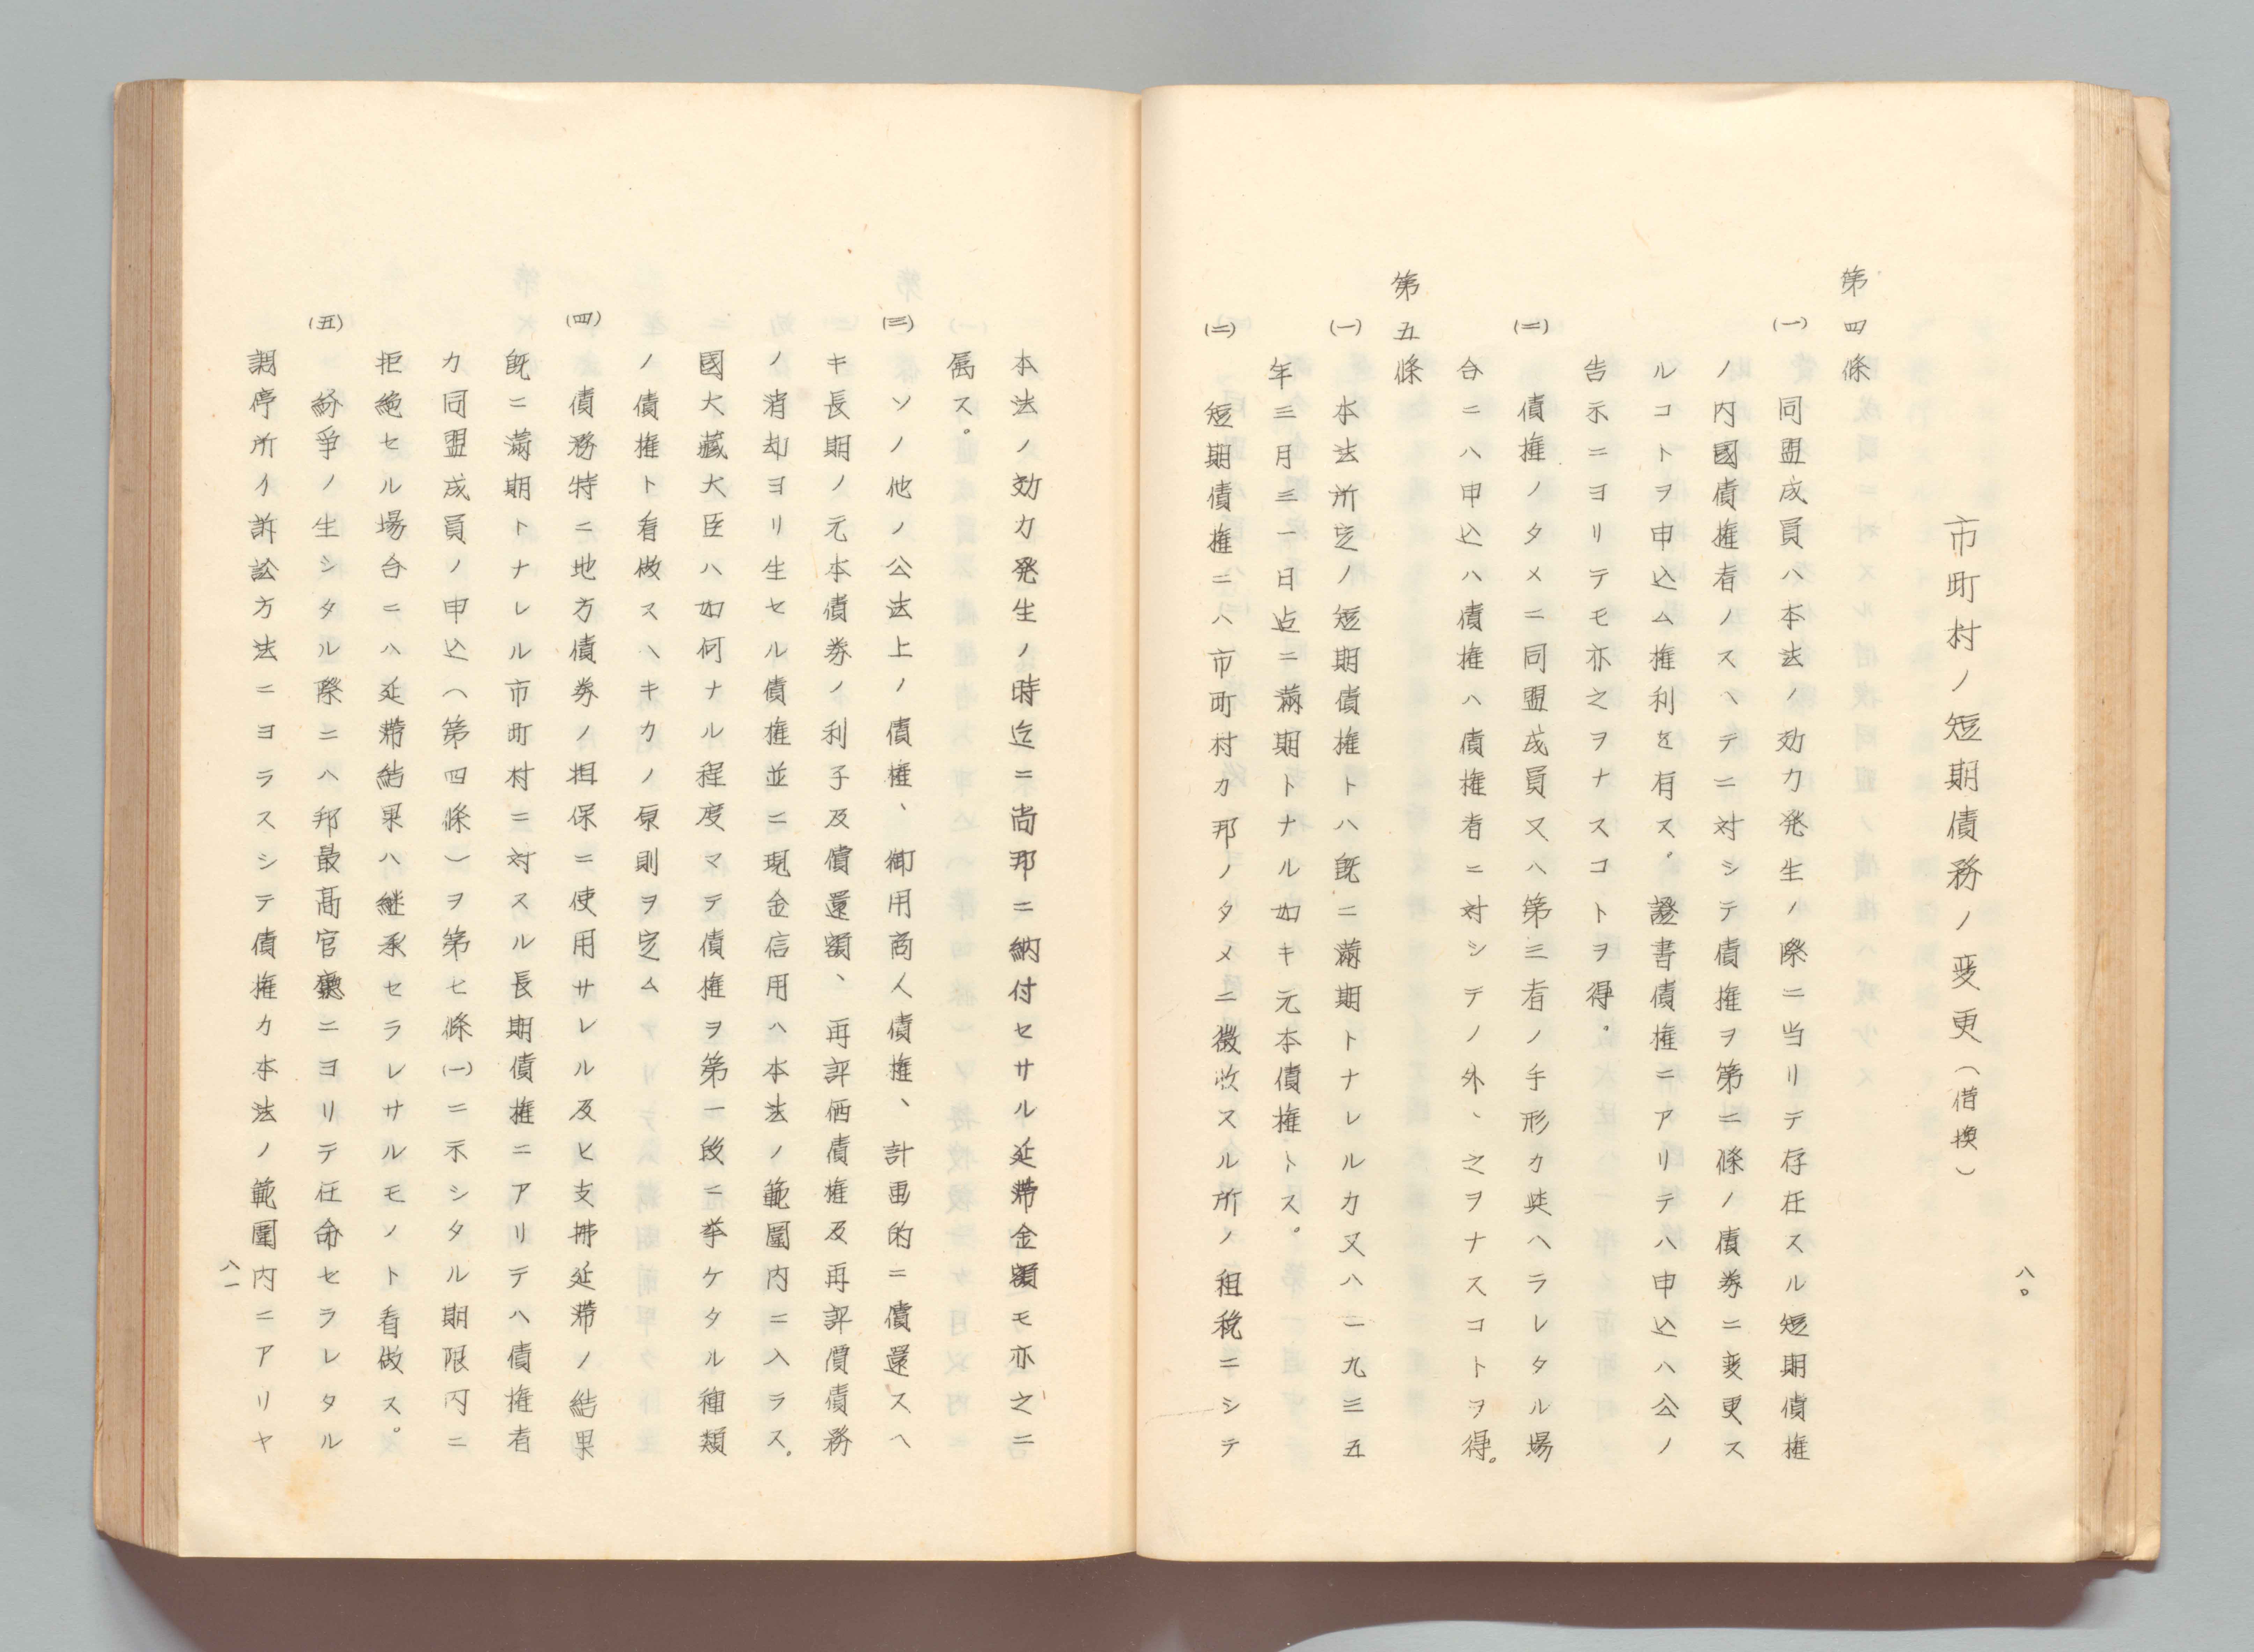 八〇
市町村ノ短期債務ノ変更(借換)
第四條
(一) 同盟成員ハ本法ノ効力発生ノ際ニ当リテ存在スル短期債権
ノ内國債権者ノスヘテニ対シテ債権ヲ第二條ノ債券ニ変更ス
ルコトヲ申込ム権利を有ス。證書債権ニアリテハ申込ハ公ノ
告示ニヨリテモ亦之ヲナスコトヲ得。
(二) 債権ノタメニ同盟成員又ハ第三者ノ手形カ與ヘラレタル場
合ニハ申込ハ債権ハ債権者ニ対シテノ外、之ヲナスコトヲ得。
第五條
(一) 本法所定ノ短期債権トハ既ニ満期トナレルカ又ハ一九三五
年三月三一日迄ニ満期トナル如キ元本債権トス。
(二) 短期債権ニハ市町村カ邦ノタメニ徴收スル所ノ租税ニシテ
本法ノ効力発生ノ時迄ニ尚邦ニ納付セサル延滞金額モ亦之ニ
属ス。
(三) ソノ他ノ公法上ノ債権、御用商人債権、計画的ニ償還スヘ
キ長期ノ元本債券ノ利子及償還額、再評価債権及再評價債務
ノ消却ヨリ生セル債権並ニ現金信用ハ本法ノ範圍内ニ入ラス。
國大藏大臣ハ如何ナル程度マテ債権ヲ第一段ニ挙ケタル種類
ノ債権ト看做スヘキカノ原則ヲ定ム
(四) 債務特ニ地方債券ノ担保ニ使用サレル及ヒ支拂延滞ノ結果
既ニ満期トナレル市町村ニ対スル長期債権ニアリテハ債権者
カ同盟成員ノ申込(第四條)ヲ第七條(一)ニ示シタル期限内ニ
拒絶セル場合ニハ延滞結果ハ継承セラレサルモノト看做ス。
(五) 紛爭ノ生シタル際ニハ邦最高官廳ニヨリテ任命セラレタル
調停所イ訴訟方法ニヨラスシテ債権カ本法ノ範圍内ニアリヤ
八一